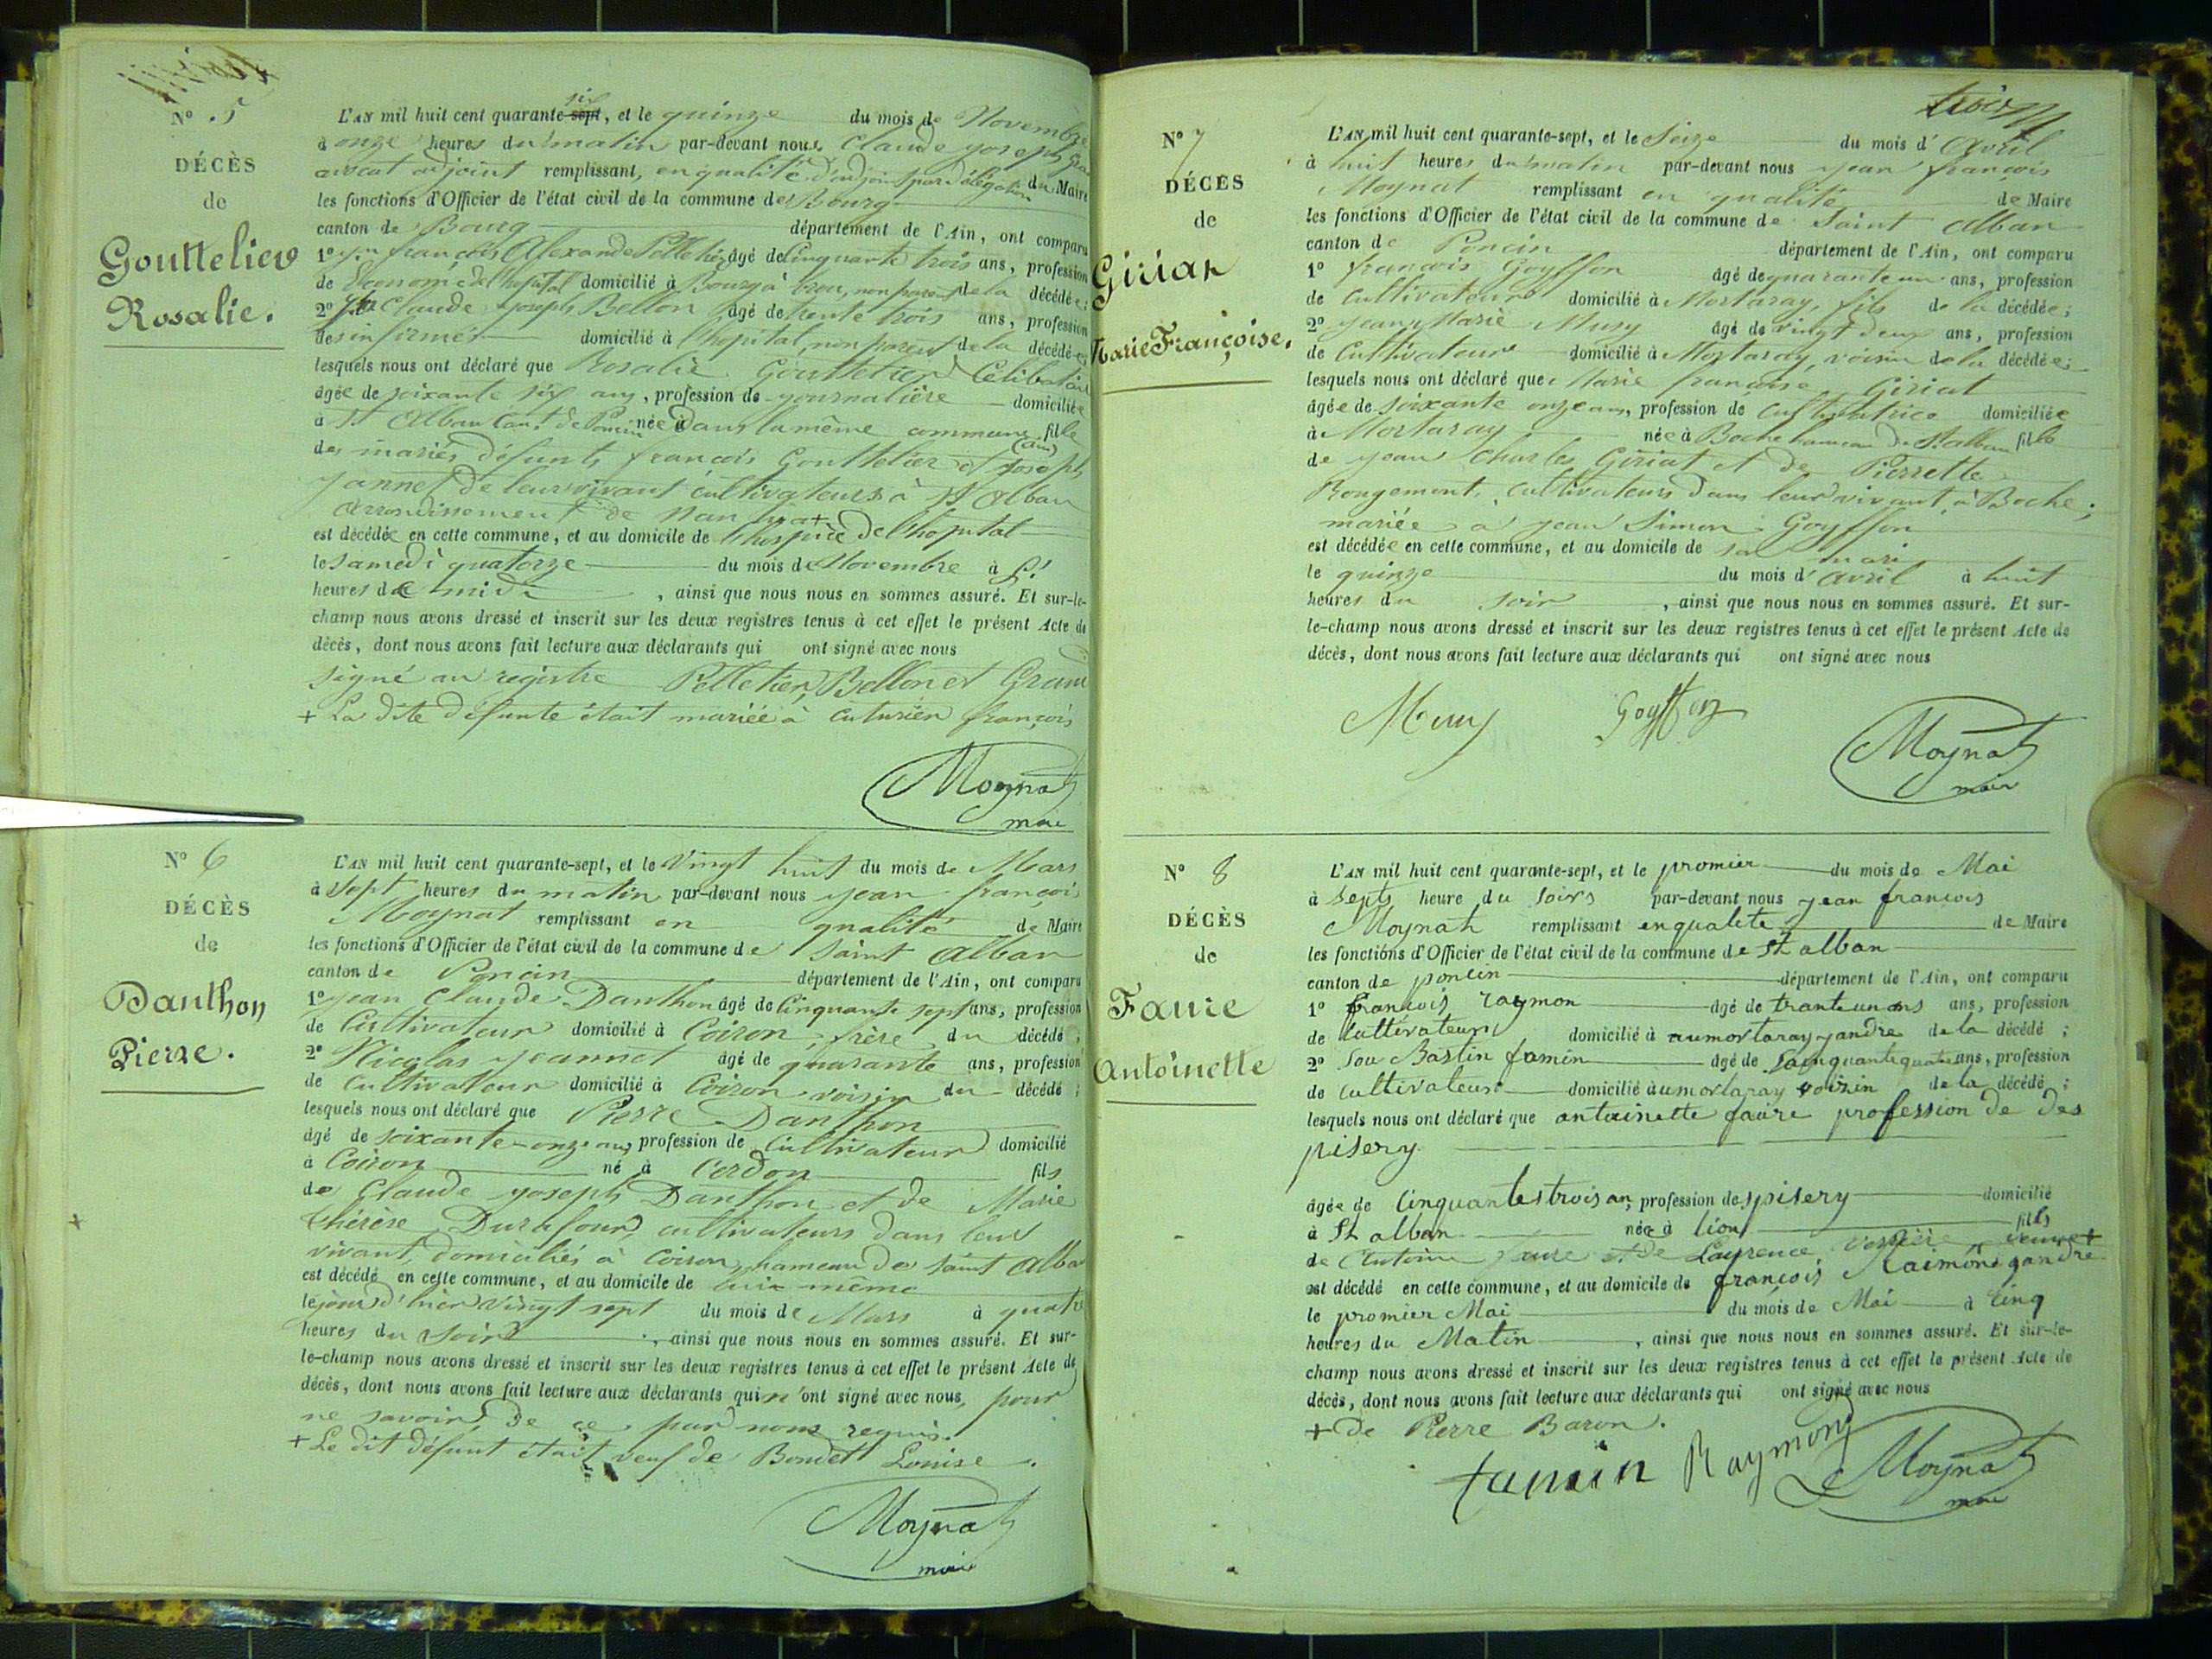 N° 5
DÉCÈS
de
Gouttelier
Rosalie.
L'AN mil huit cent quarante-sept six, et le quinze du mois de Novembre
à onze heures du matin par-devant nous Claude joseph
avocat adjoint remplissant, en qualité d'adjoint par délégation du Maire
les fonctions d'Officier de l'état civil de la commune de Bourg
canton de Bourg département de l'Ain, ont comparu
1° jn françois Alexande Pelletier, âgé de Cinquante trois ans, profession
de Econome de l'hopital domicilié à Bourg à brou, non parent de la décédée;
2° Claude joseph Bellon âgé de trente trois ans, profession
des infirmes domicilié à l'hopital, non parent de la décédée;
lesquels nous ont déclaré que Rosalie Gouttelier Célibataire
âgée de soixante six ans, profession de journalière domiciliée
à St Alban Cant. de Poncin née à Dans la même commune fille
des mariés défunts françois Gouttelier et joseph
jannet de leur vivant cultivateurs à St Alban
arrondissement de nantua +
est décédée en cette commune, et au domicile de l'hospice de l'hopital
le samedi quatorze du mois de Novembre à
heures de midi, ainsi que nous nous en sommes assuré. Et sur-le-
champ nous avons dressé et inscrit sur les deux registres tenus à cet effet le présent Acte de
décès, dont nous avons fait lecture aux déclarants qui ont signé avec nous
signé au registre Pelletier, Bellon et Grand
+ La dite défunte était mariée à cuturier françois
Moynat
maire
N° 6
DÉCÈS
de
Danthon
Pierre.
L'AN mil huit cent quarante-sept, et le Vingt huit du mois de Mars
à sept heures du matin par-devant nous jean françois
Moynat remplissant en qualité de Maire
les fonctions d'Officier de l'état civil de la commune de Saint Alban
canton de Poncin département de l'Ain, ont comparu
1° jean Claude Danthon âgé de Cinquante sept ans, profession
de Cultivateur domicilié à Coiron, frère du décédé;
2° Nicolas jeannet âgé de quarante ans, profession
de cultivateur domicilié à Coiron voisin du décédé;
lesquels nous ont déclaré que Pierre Danthon
âgé de soixante-onze ans, profession de Cultivateur domicilié
à Coiron né à Cerdon fils
de Claude joseph Danthon et de Marie
thérèse Durafour, cultivateurs dans leur
vivant, domiciliés à Coiron, hameau de Saint Alba
est décédé en cette commune, et au domicile de lui-même
le jour d'hier vingt sept du mois de Mars à quatre
heures du soir, ainsi que nous nous en sommes assuré. Et sur-
le-champ nous avons dressé et inscrit sur les deux registres tenus à cet effet le présent Acte de
décès, dont nous avons fait lecture aux déclarants qui n'ont signé avec nous, pour
ne savoir, de ce par nous requis.
+ Le dit défunt était veuf de Boudet Louise.
Moynat
maire
trois
N° 7
DÉCÈS
de
Giriat
Marie Françoise.
L'AN mil huit cent quarante-sept, et le Seize du mois d'Avril
à huit heures du matin par-devant nous jean françois
Moynat remplissant en qualité de Maire
les fonctions d'Officier de l'état civil de la commune de Saint Alban
canton de Poncin département de l'Ain, ont comparu
1° françois Goyffon âgé de quarante un ans, profession
de Cultivateur domicilié à Mortaray, fils de la décédée;
2° jean Marie Musy âgé de vingt deux ans, profession
de Cultivateur domicilié à Mortaray, voisin de la décédée;
lesquels nous ont déclaré que Marie françoise Giriat
âgée de soixante onze ans, profession de Cultivatrice domiciliée
à Mortaray née à Boche hameau de St alban fille
de jean Charles Giriat et de Pierrette
Rougemont, cultivateurs dans leur vivant, à Boche;
mariée à jean Simon Goyffon
est décédée en cette commune, et au domicile de son mari
le quinze du mois d'avril à huit
heures du soir, ainsi que nous nous en sommes assuré. Et sur-
le-champ nous avons dressé et inscrit sur les deux registres tenus à cet effet le présent Acte de
décès, dont nous avons fait lecture aux déclarants qui ont signé avec nous
Musy Goyffon
Moynat
maire
N° 8
DÉCÈS
de
Faure
Antoinette
L'AN mil huit cent quarante-sept, et le promier du mois de Mai
à septs heure du soirs par-devant nous jean francois
Moynat remplissant enqualite de Maire
les fonctions d'Officier de l'état civil de la commune de St alban
canton de poncin département de l'Ain, ont comparu
1° francois raymon âgé de tranteun ans ans, profession
de cultivateur domicilié à aumortaray jandre de la décédé;
2° Sou Bastin famin âgé de sainquantequatre ans, profession
de cultivateur domicilié à umortaray voizin de la décédé;
lesquels nous ont déclaré que antoinette faure profession de des
pisery
âgée de cinquantestrois an, profession despisery domicilié
à St alban née à lion fils
de Antoine faure et de Laurence Verrière, veuve +
est décédé en cette commune, et au domicile de francois Raimon gandre
le promier Mai du mois de Mai à cinq
heures du Matin, ainsi que nous nous en sommes assuré. Et sur-le-
champ nous avons dressé et inscrit sur les deux registres tenus à cet effet le présent Acte de
décès, dont nous avons fait lecture aux déclarants qui ont signé avec nous
+ de Pierre Baron.
famin Raymond Moynat
maire